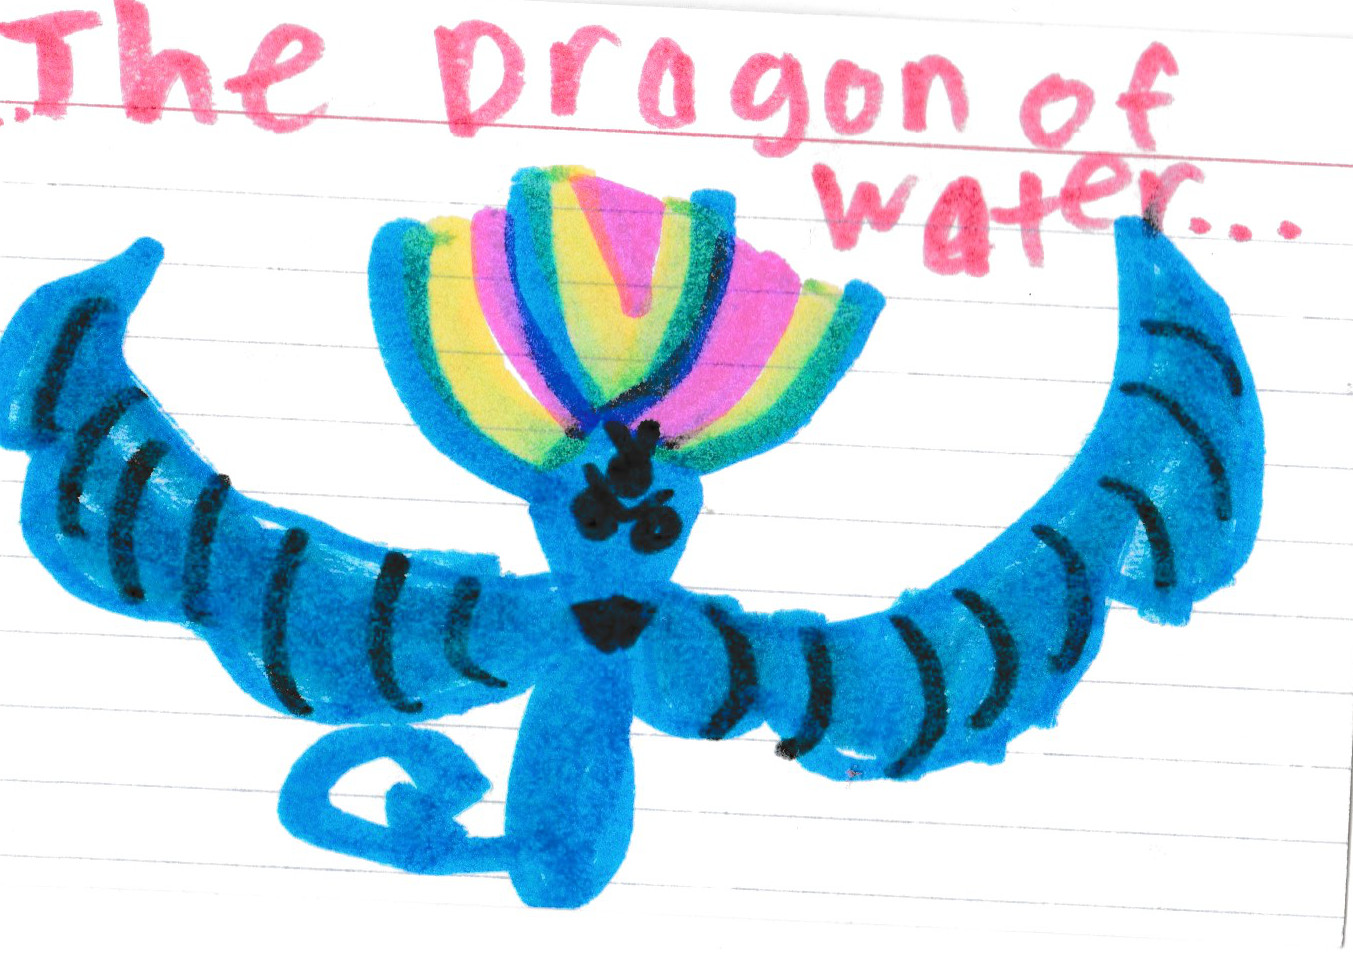 ..The Dragon of
water...